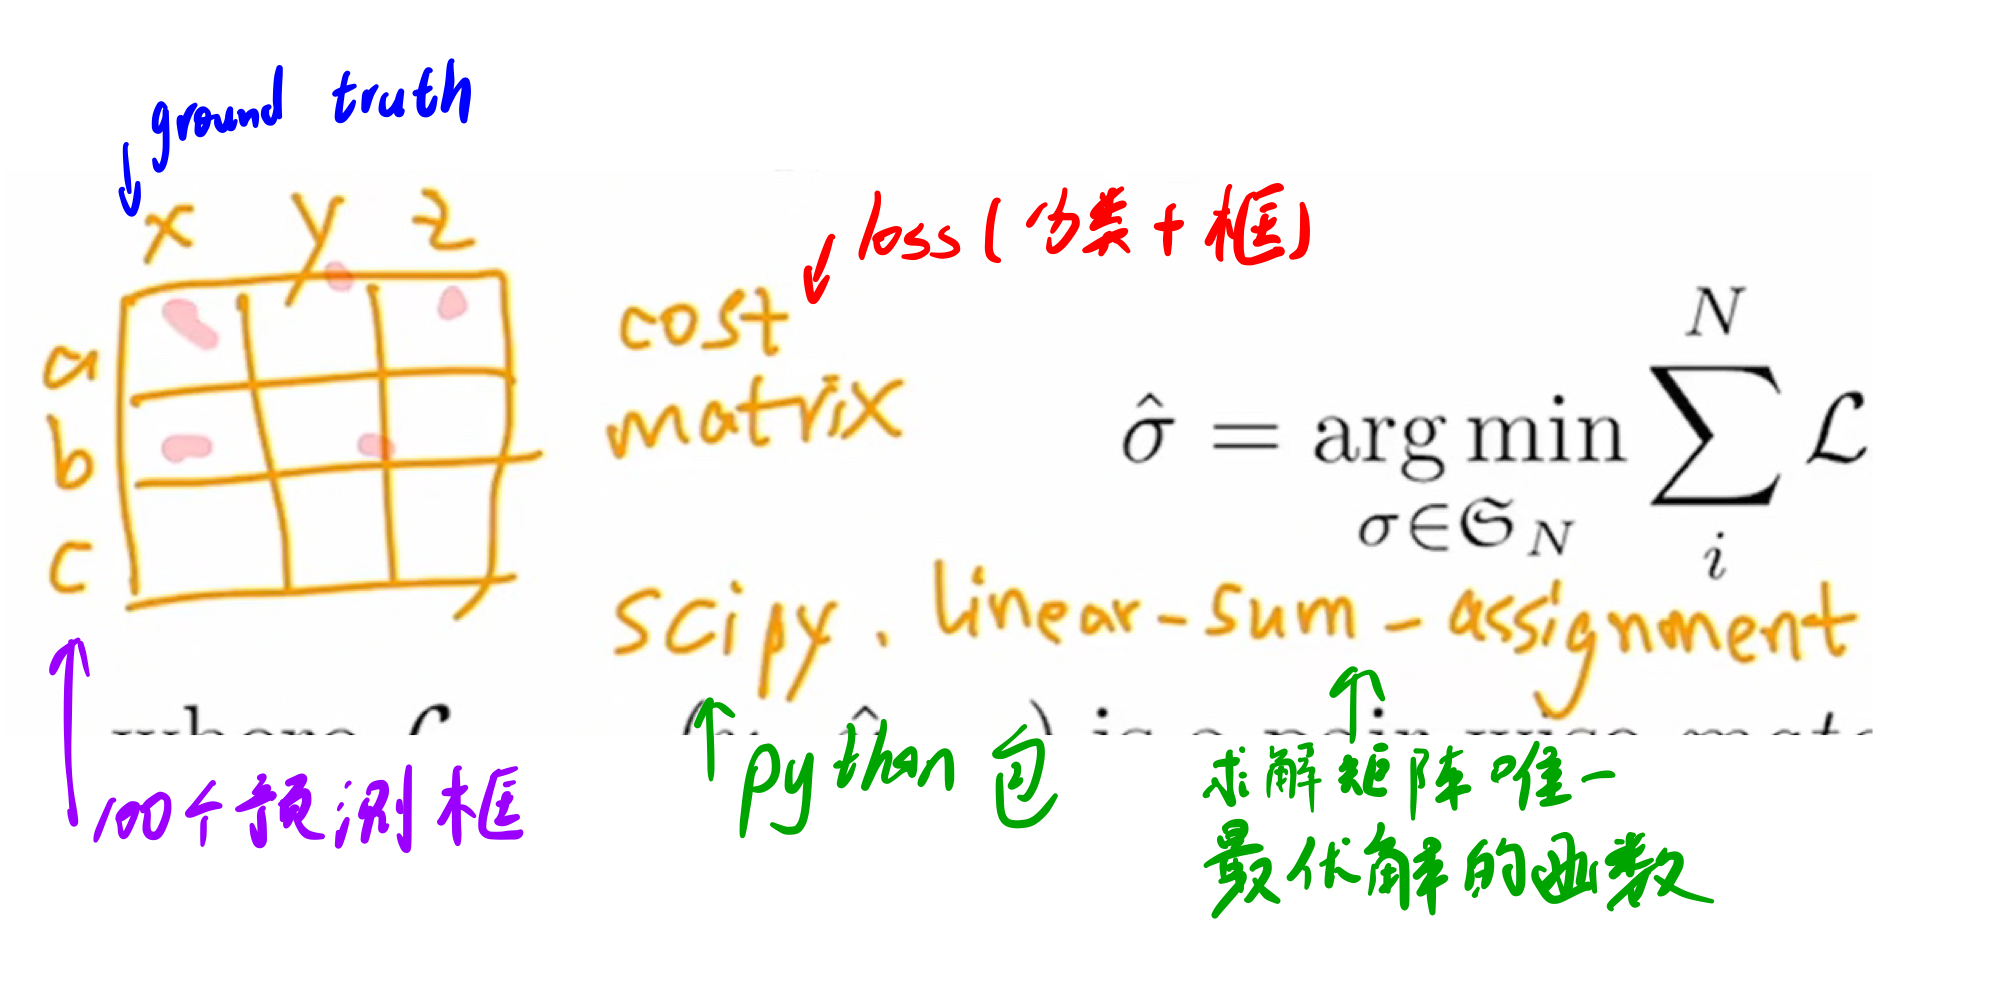 ground truth
x y z
loss(分类+框)
cost
matrix
a
b
c
σ̂ = arg min σ∈𝔖_N ∑ N i ℒ
scipy.linear-sum-assignment
where ℒ
) is a pair-wise matc
100个预测框
python包
求解矩阵唯一
最优解的函数